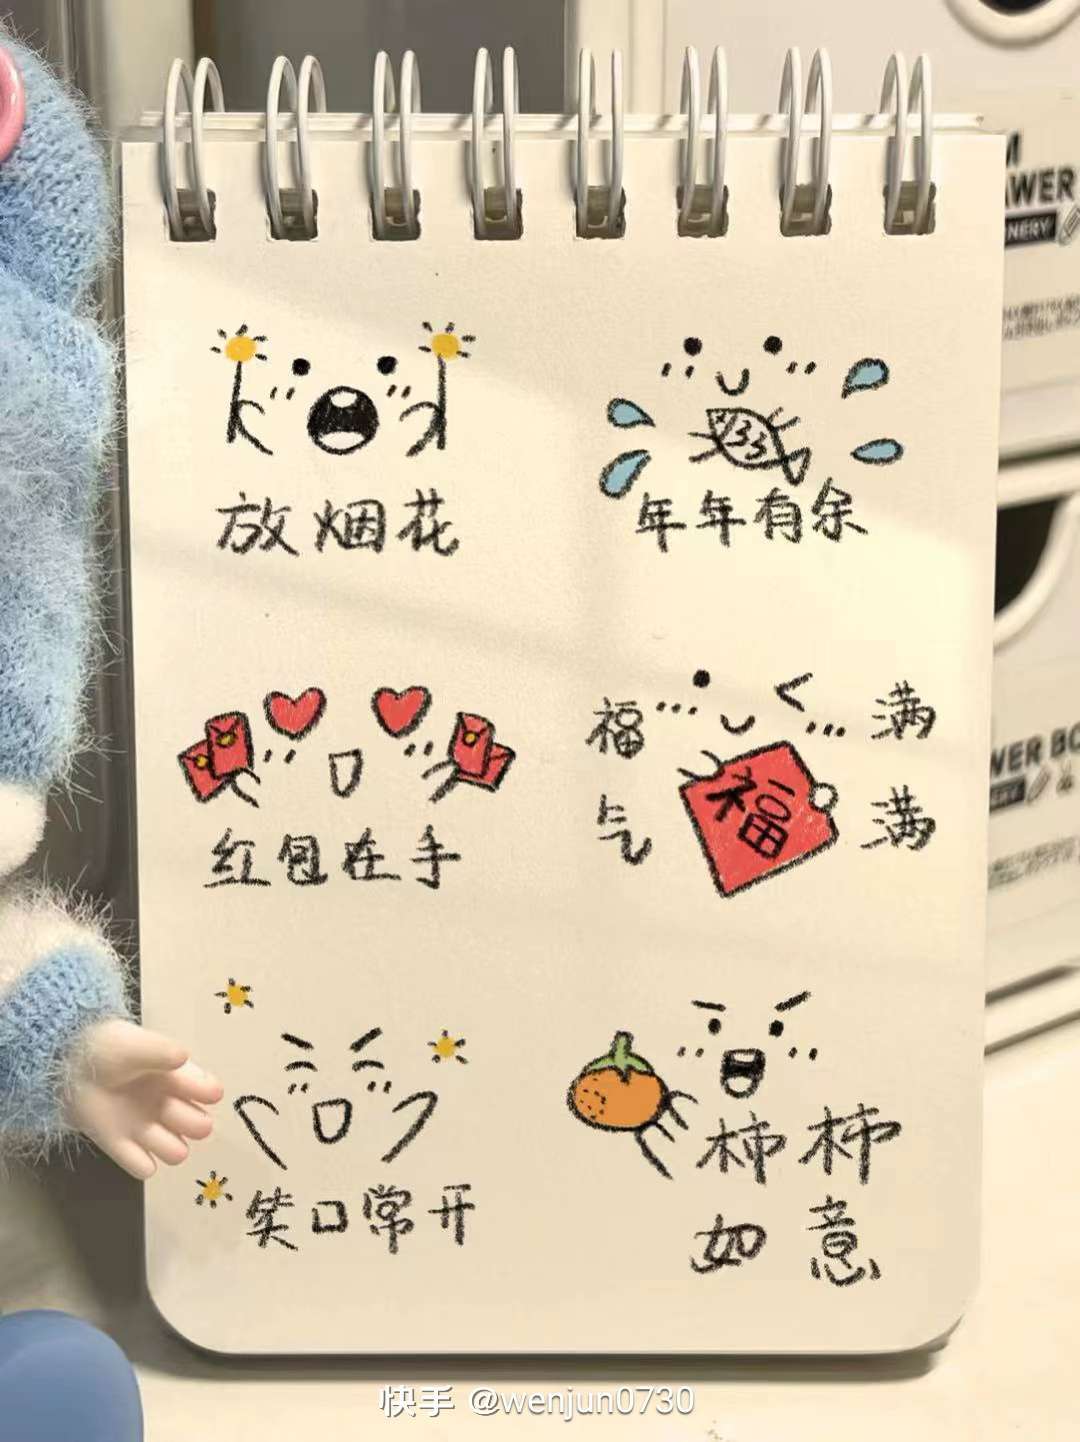 M
AWER
NERY
放烟花
年年有余
WER BO
红包在手
福气
满满
福
笑口常开
柿柿
如意
快手 @wenjun0730